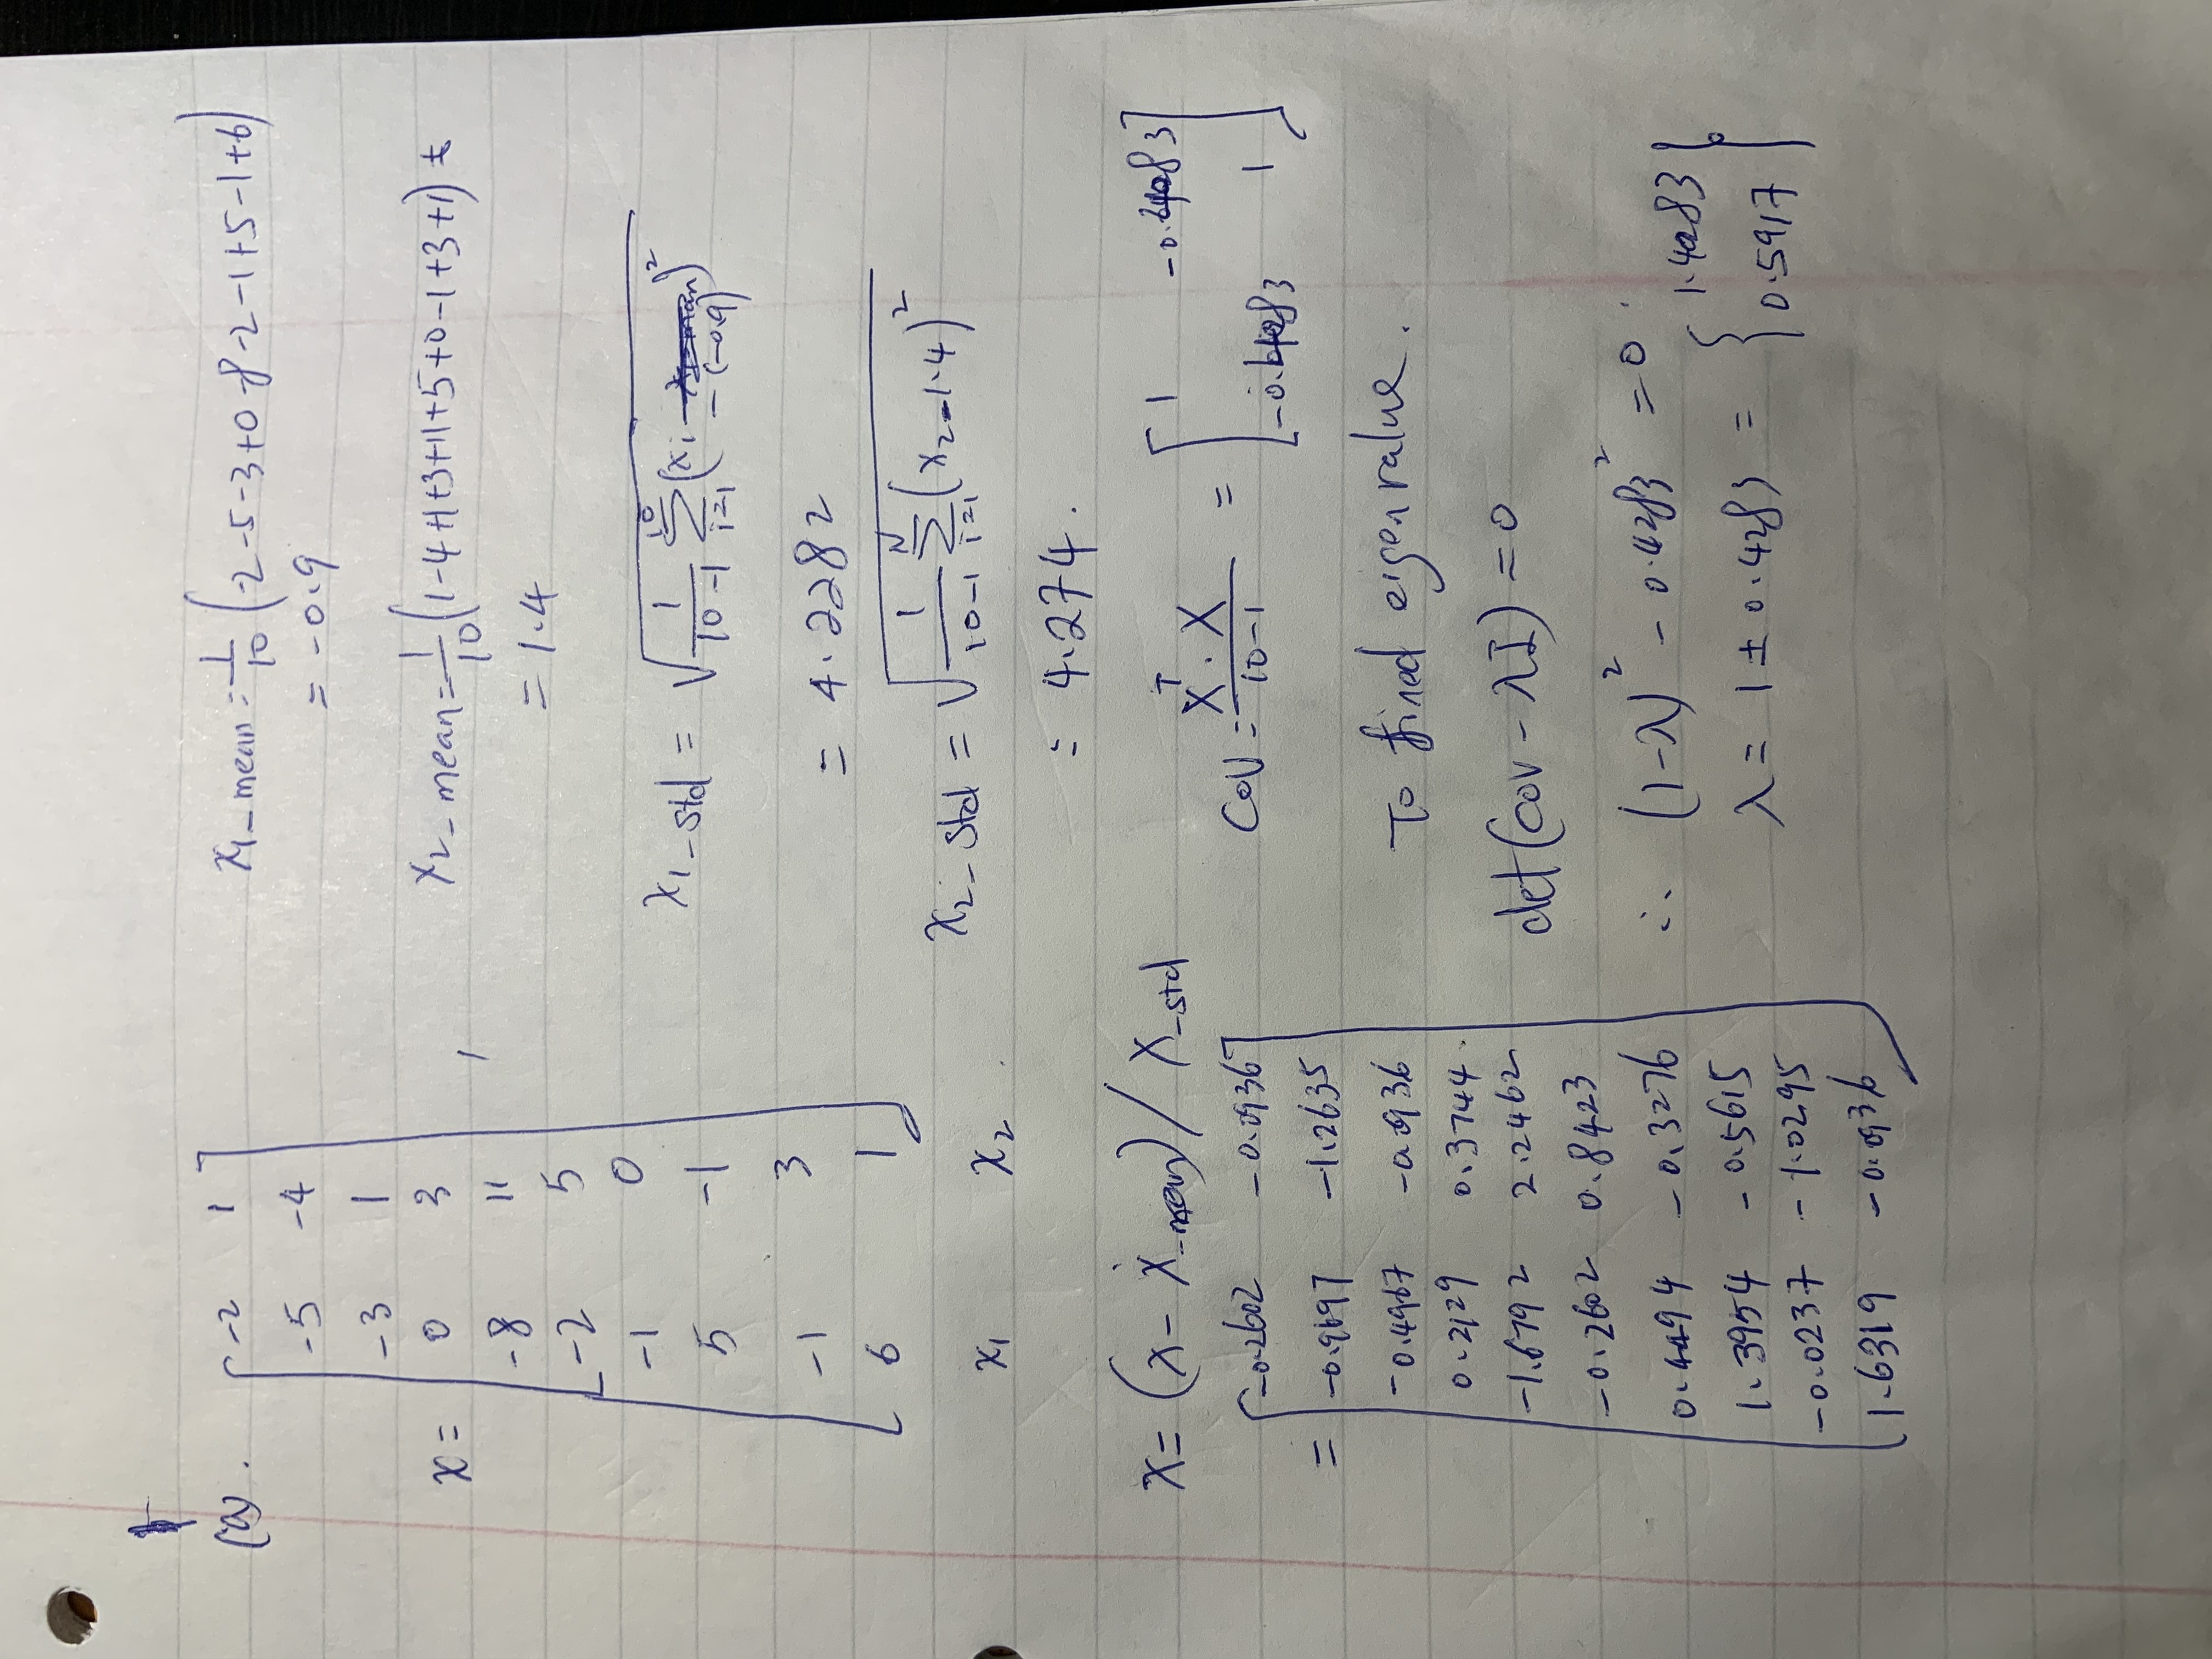 (a).
x = [ -2 1
-5 -4
-3 1
0 3
-8 11
-2 5
-1 0
5 -1
-1 3
6 1 ] ,
x1 x2 .
x1_mean = 1/10 (-2-5-3+0-8-2-1+5-1+6)
= -0.9
x2_mean = 1/10 (1-4+1+3+11+5+0-1+3+1) =
= 1.4
x1_std = √( 1/(10-1) Σ_{i=1}^{10} (xi - (-0.9))² )
= 4.2282
x2_std = √( 1/(10-1) Σ_{i=1}^{N} (x2-1.4)² )
= 4.274.
X = (x - x_mean) / X_std
= [ -0.2602 -0.0936
-0.9697 -1.2635
-0.4967 -0.0936
0.2129 0.3744
-1.6792 2.2462
-0.2602 0.8423
0.4494 -0.3276
1.3954 -0.5615
-0.0237 -1.0295
1.6319 -0.0936 ]
Cov = X^T · X / (10-1) = [ 1
1 ]
To fined eigenvalue.
det(cov - λI) = 0
∴ (1-λ)² - 0.4283² = 0
λ = 1 ± 0.4283 = { 1.4283
0.5917